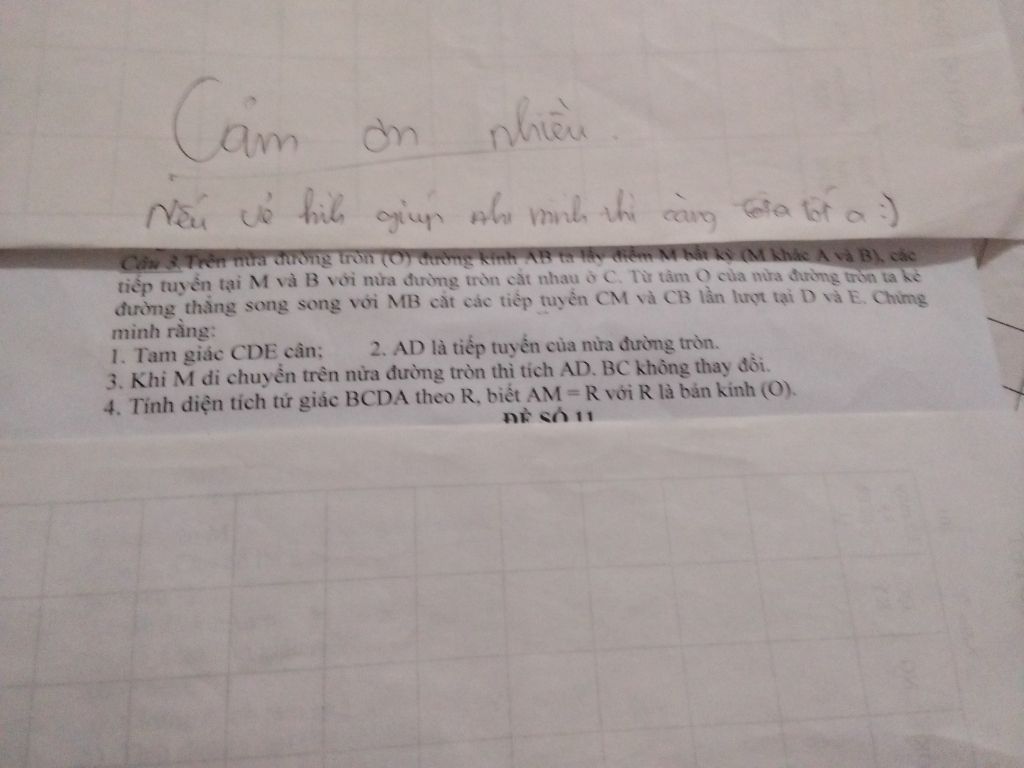 Cảm ơn nhiều.
Nếu vẽ hìh giúp mh mình thì càng tốt ạ :)
Câu 3. Trên nửa đường tròn (O) đường kính AB ta lấy điểm M bất kỳ (M khác A và B), các
tiếp tuyến tại M và B với nửa đường tròn cắt nhau ở C. Từ tâm O của nửa đường tròn ta kẻ
đường thẳng song song với MB cắt các tiếp tuyến CM và CB lần lượt tại D và E. Chứng
minh rằng:
1. Tam giác CDE cân; 2. AD là tiếp tuyến của nửa đường tròn.
3. Khi M di chuyển trên nửa đường tròn thì tích AD. BC không thay đổi.
4. Tính diện tích tứ giác BCDA theo R, biết AM = R với R là bán kính (O).
ĐỀ SỐ 11